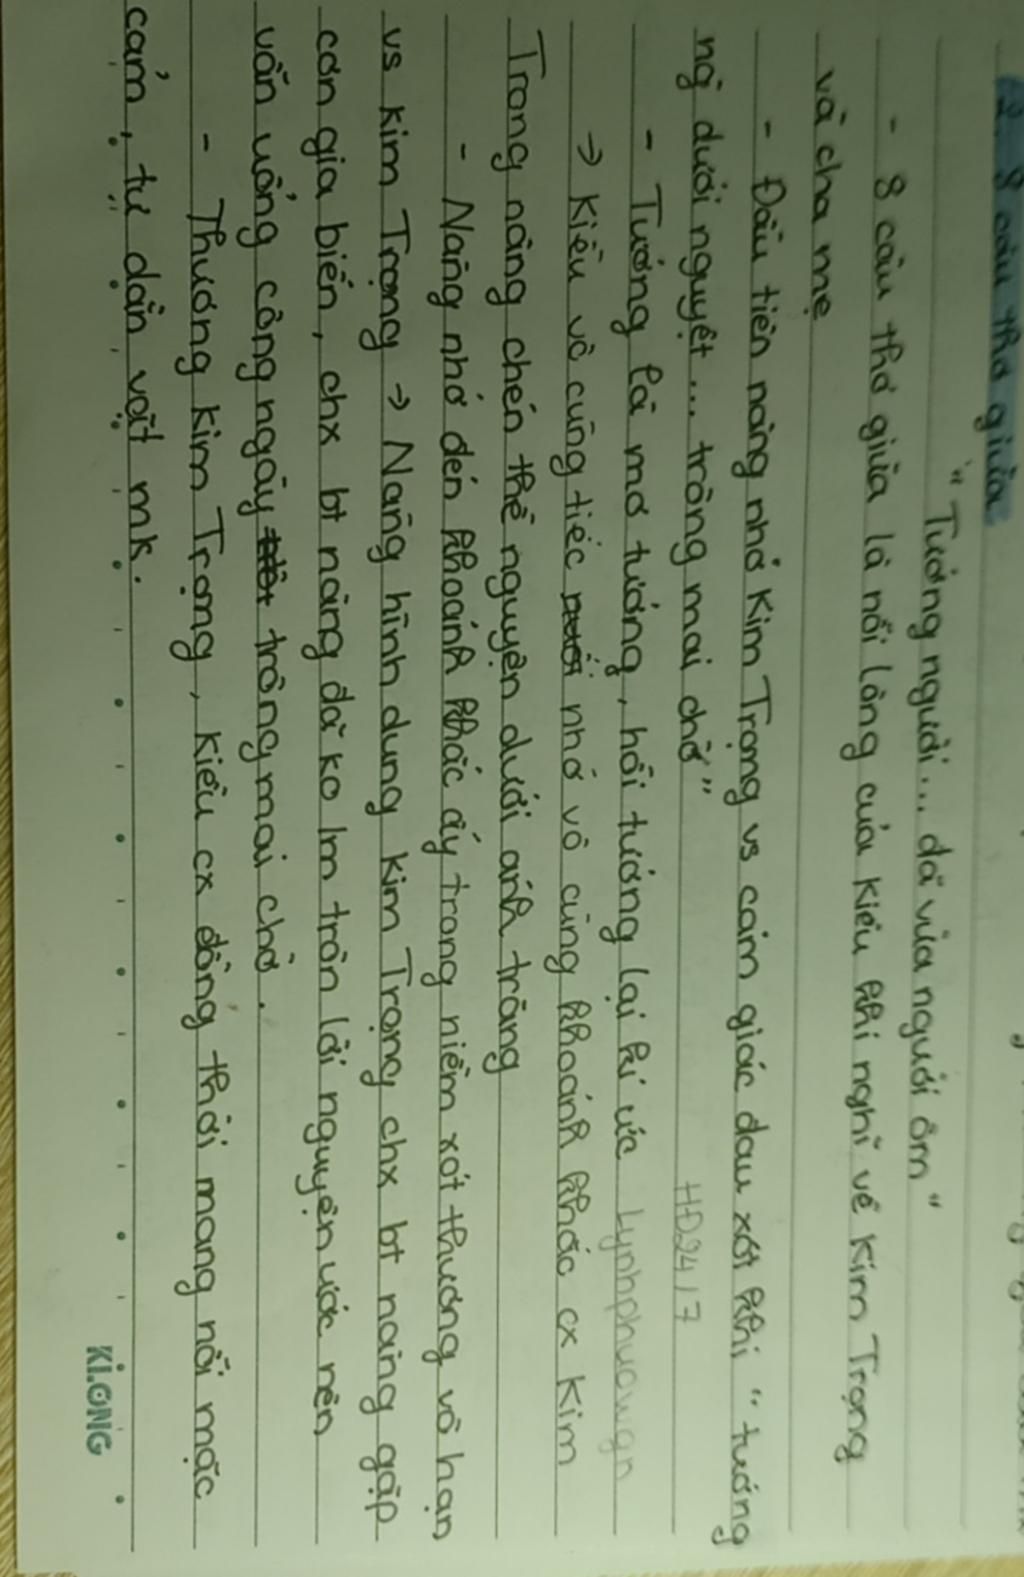 2. 8 câu thơ giữa
"Tưởng người... đã vừa người ôm"
- 8 câu thơ giữa là nỗi lòng của Kiều khi nghĩ về Kim Trọng
và cha mẹ
- Đầu tiên nàng nhớ Kim Trọng vs cảm giác đau xót khi "tưởng
ng dưới nguyệt... trông mai chờ"
HĐ2417
- Tưởng là mơ tưởng, hồi tưởng lại kí ức
Lynhphuowgn
→ Kiều vô cùng tiếc nhớ vô cùng khoảnh khắc cx Kim
Trọng nâng chén thề nguyện dưới ánh trăng
- Nàng nhớ đến khoảnh khắc ấy trong niềm xót thương vô hạn
vs Kim Trọng → Nàng hình dung Kim Trọng chx bt nàng gặp
cơn gia biến, chx bt nàng đã ko lm tròn lời nguyện ước nên
vẫn uổng công ngày trông mai chờ.
- Thương Kim Trọng, Kiều cx đồng thời mang nỗi mặc
cảm, tự dằn vặt mk.
KLONG